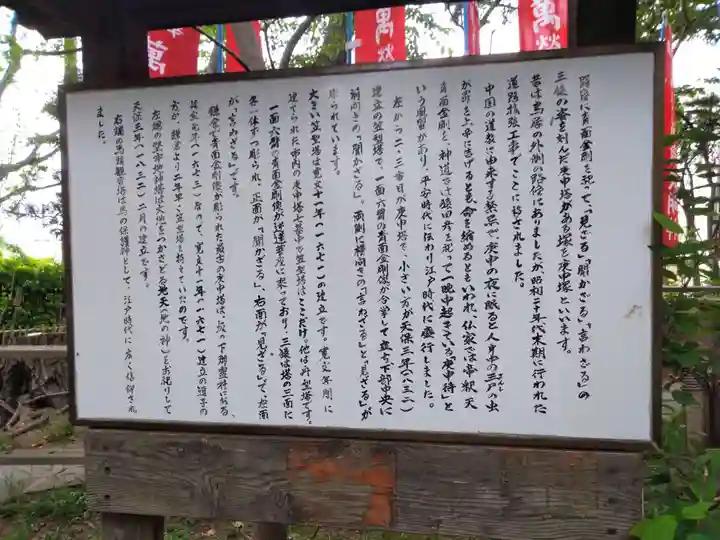 路傍に青面金剛を祀って、「見ざる」「聞かざる」「言わざる」の
三猿の姿を刻んだ庚申塔がある塚を庚申塚といいます。
昔は鳥居の外側の路傍にありましたが、昭和二十年代末期に行われた
道路拡張工事でここに移されました。
中国の道教に由来する禁忌で、庚申の夜に眠ると人身中の三尸の虫
が罪を上帝に告げるとも、命を縮めるともいわれ、仏家では帝釈天
青面金剛を、神道では猿田彦を祀って一晩中起きている「庚申待」と
いう風習があり、平安時代に伝わり江戸時代に盛行しました。
左から二、三番目が庚申塔で、小さい方が天保三年(一八三二)
建立の笠型塔で、一面六臂の青面金剛像が合掌して立ち、下部中央に
前向きの「聞かざる」、両側に横向きの「言わざる」と「見ざる」が
彫られています。
大きい笠型塔は寛文十一年(一六七一)の建立です。寛文年間に
建てられた市内の庚申塔七基中で笠型塔はここだけ。他は舟型塔です。
一面六臂の青面金剛像が邪鬼に乗っており、三猿は塔の三面に
各一体ずつ彫られ、正面が「聞かざる」、右面が「見ざる」で、左面
が「言わざる」です。
鎌倉で青面金剛像が彫られた最古の庚申塔は、坂の下御霊神社にある、
延宝元年(一六七三)なので、寛文十一年(一六七一)建立の逗子の
方が、鎌倉より二年早く笠型塔を持っていたのです。
左端の堅牢地神塔は大地をつかさどる地天(地の神)をお祀りして
天保三年(一八三二)二月の建立です。
右端の馬頭観音塔は馬の保護神として、江戸時代に広く信仰され
ました。
萬
萬